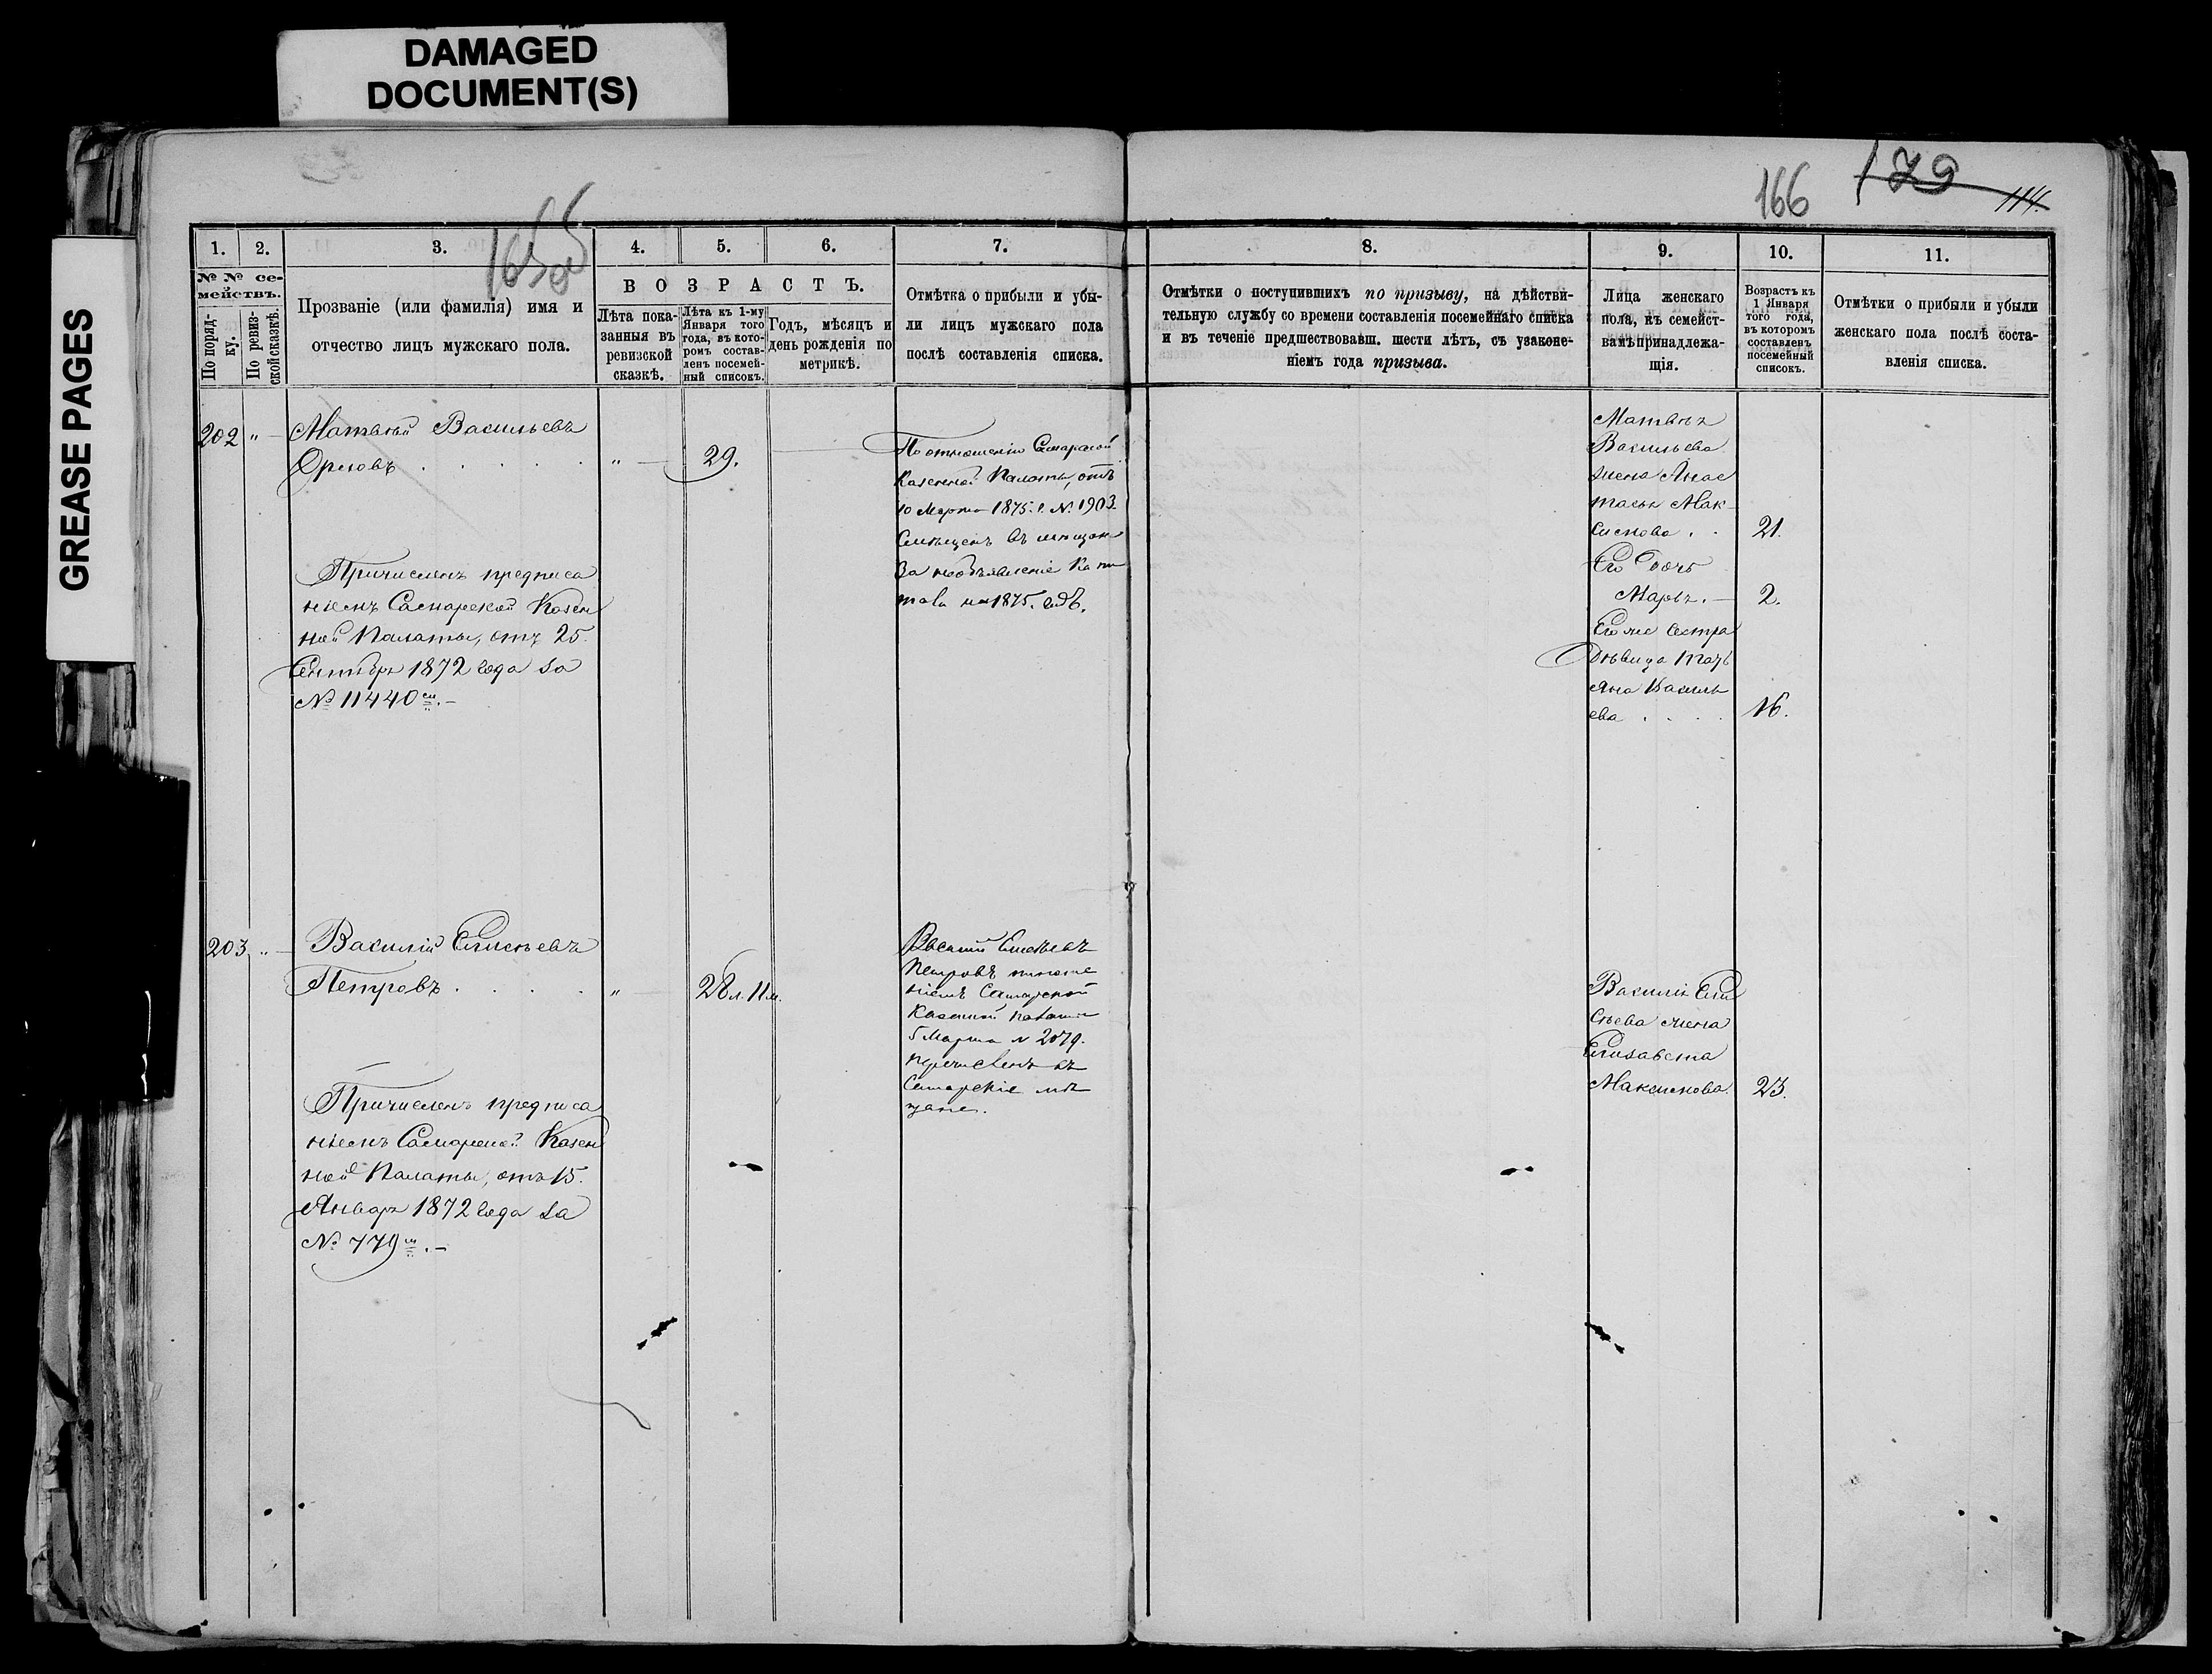 DAMAGED
DOCUMENT(S)
GREASE PAGES
166
179
114.
165об
1.
2.
3.
4.
5.
6.
7.
8.
9.
10.
11.
№ № се-
мействъ.
По поряд-
ку.
По ревиз-
ской сказкѣ.
Прозваніе (или фамилія) имя и
отчество лицъ мужскаго пола.
ВОЗРАСТЪ.
Лѣта пока-
занныя въ
ревизской
сказкѣ.
Лѣта къ 1-му
Января того
года, въ кото-
ромъ состав-
ленъ посемей-
ный списокъ.
Годъ, мѣсяцъ и
день рожденія по
метрикѣ.
Отмѣтка о прибыли и убы-
ли лицъ мужскаго пола
послѣ составленія списка.
Отмѣтки о поступившихъ по призыву, на дѣйстви-
тельную службу со времени составленія посемейнаго списка
и въ теченіе предшествовавш. шести лѣтъ, съ узаконе-
ніемъ года призыва.
Лица женскаго
пола, къ семейст-
вамъ принадлежа-
щія.
Возрастъ къ
1 Января
того года,
въ которомъ
составленъ
посемейный
списокъ.
Отмѣтки о прибыли и убыли
женскаго пола послѣ соста-
вленія списка.
202 " Матвѣй Васильевъ
Орловъ . . . . . " 29.
Причисленъ предписа
ніемъ Самарской Казен
ной Палаты, отъ 25.
Сентября 1872 года за
№ 11440мъ.-
По отношенію Самарской
Казенной Палаты, отъ
10 Марта 1875. г. № 1903.
Смѣщенъ въ мѣщан
За необъявленіе Капи
тала на 1875. годъ.
Матвѣя
Васильева
жена Анас
тасья Мак-
симова . . 21.
Его дочь
Марья. — 2.
Его же сестра
Дѣвица Тать
яна Василь
ева . . . . 16.
203 " Василій Елисѣевъ
Петровъ . . . . . " 28 л. 11 м.
Причисленъ предписа
ніемъ Самарской Казен
ной Палаты, отъ 15.
Января 1872 года за
№ 779мъ.-
Василій Елисѣевъ
Петровъ
ніемъ Самарской
Казенной Палаты
5 Марта № 2079.
перечисленъ въ
Самарскіе мѣ
щане.
Василія Ели
сѣева жена
Елизавета
Максимова. 23.